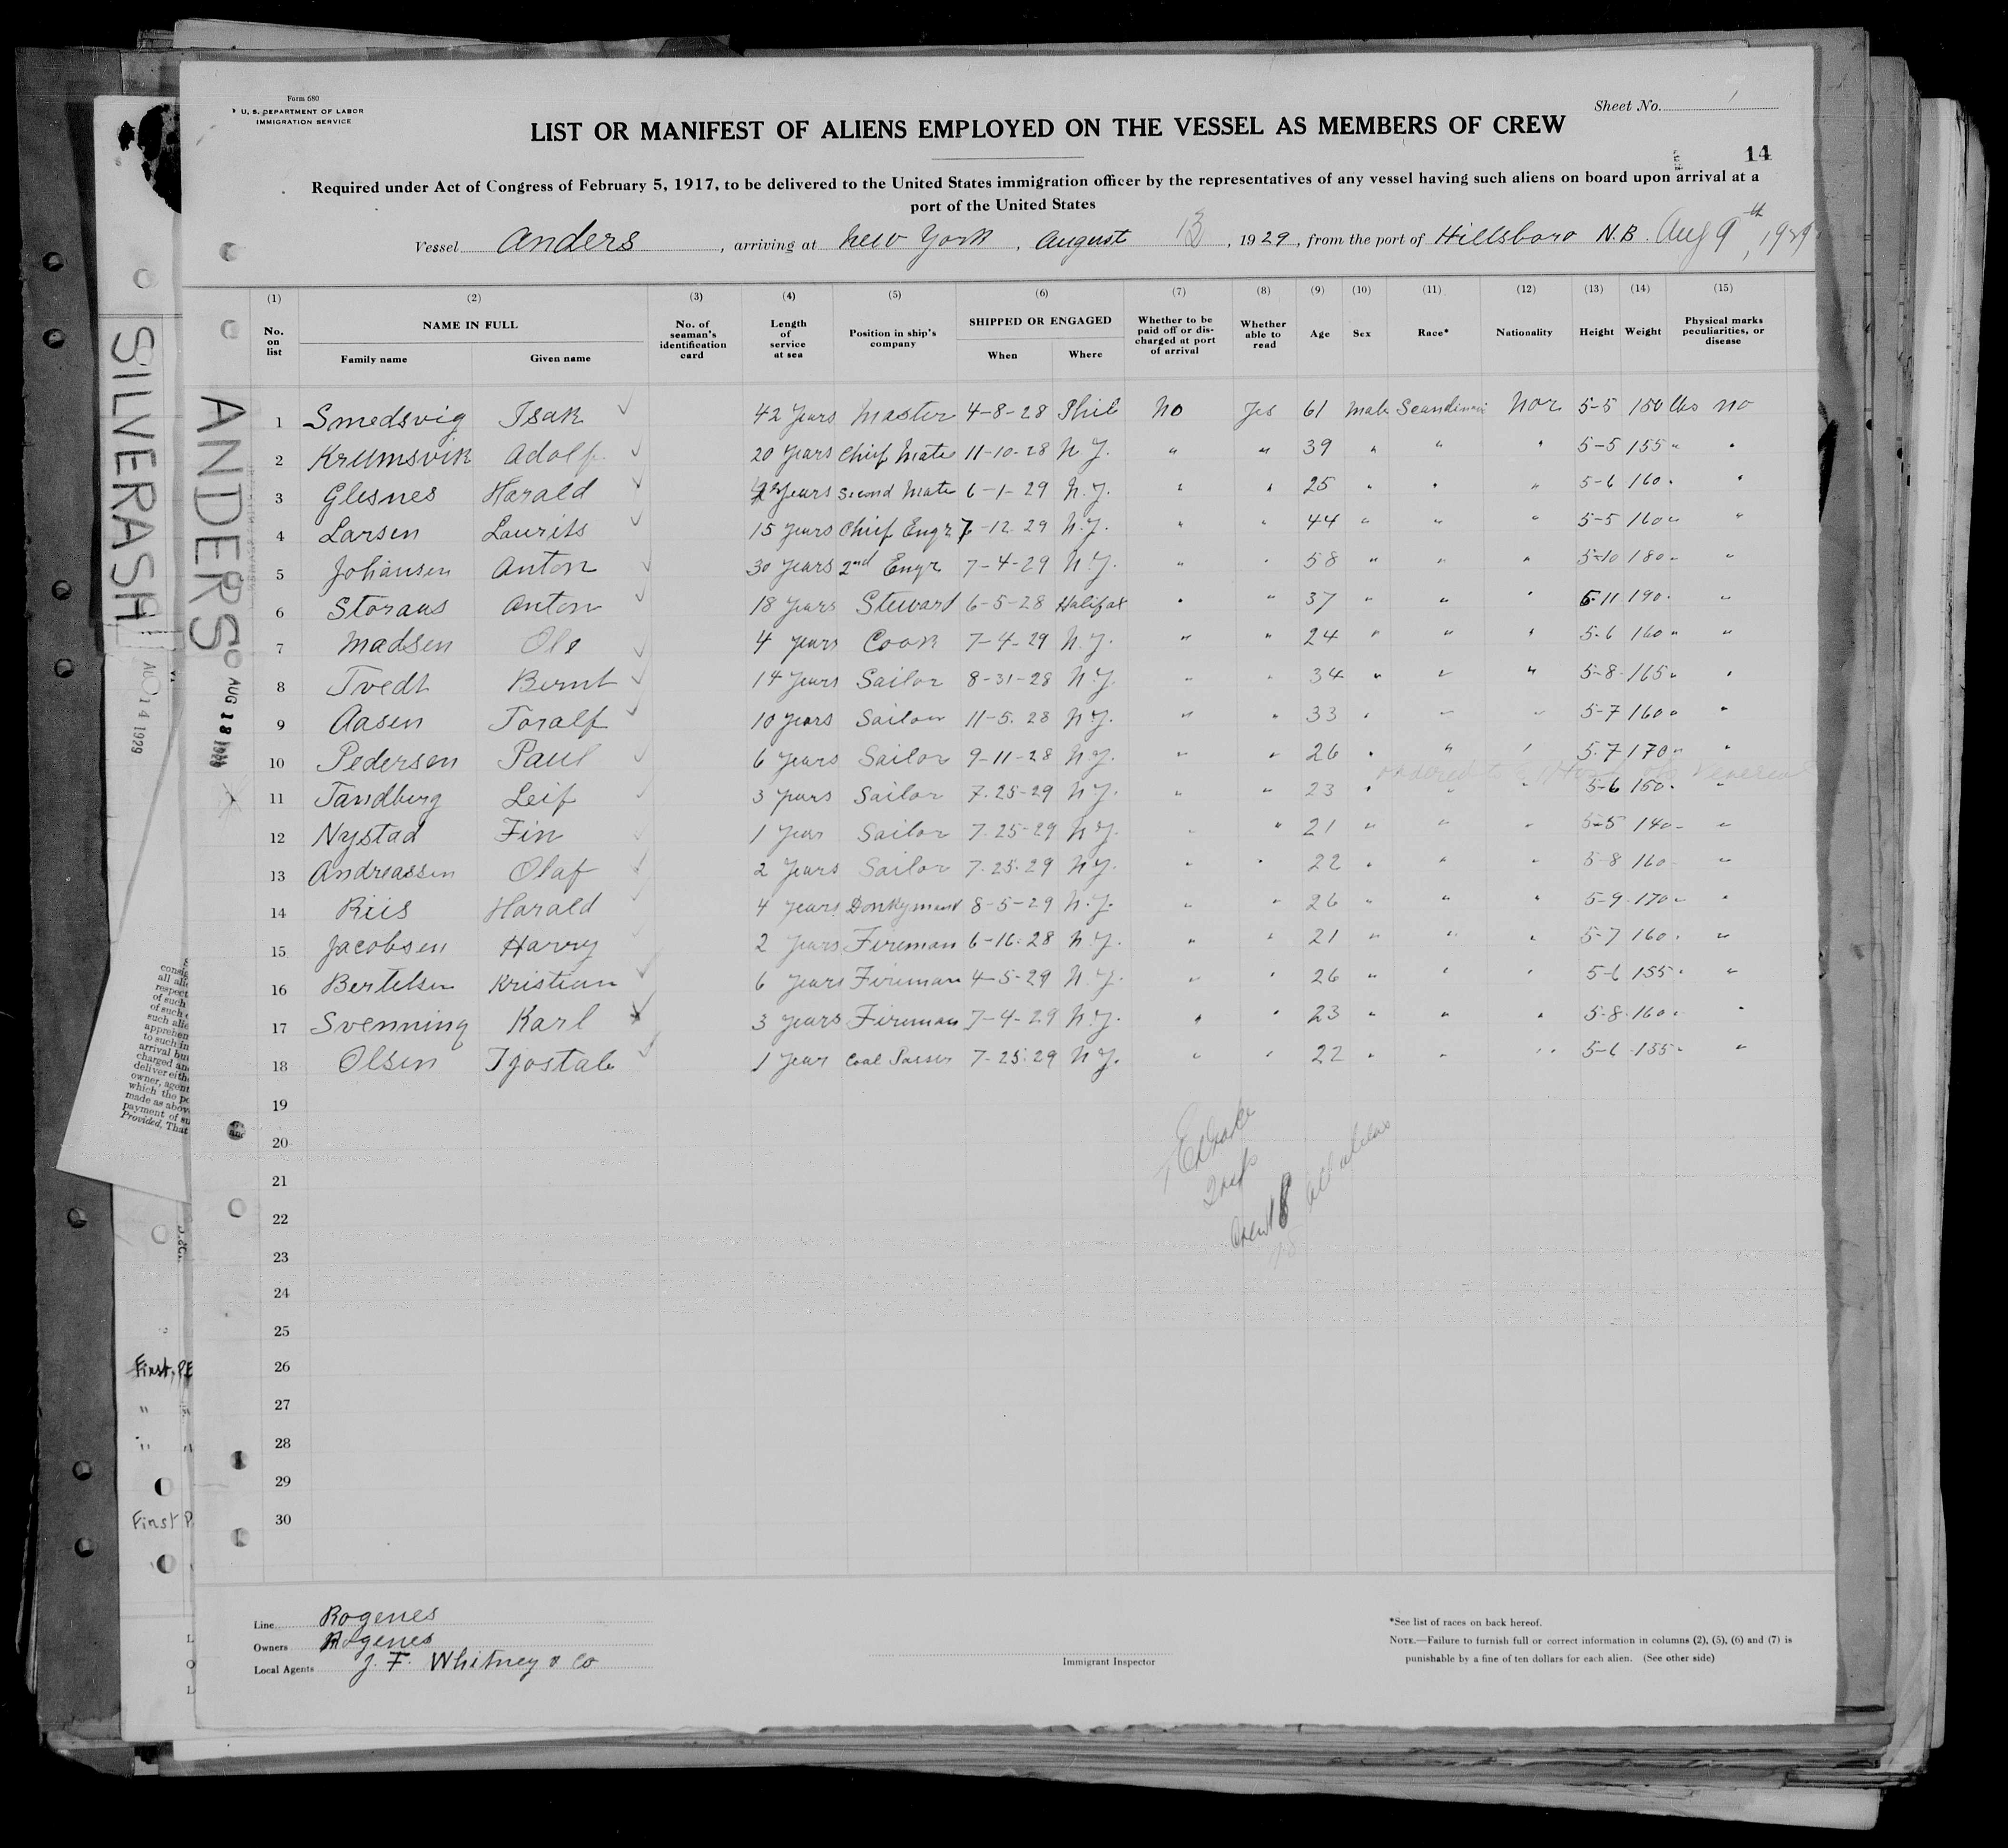 Form 680
U. S. DEPARTMENT OF LABOR
IMMIGRATION SERVICE
Sheet No. 1
LIST OR MANIFEST OF ALIENS EMPLOYED ON THE VESSEL AS MEMBERS OF CREW
14
Required under Act of Congress of February 5, 1917, to be delivered to the United States immigration officer by the representatives of any vessel having such aliens on board upon arrival at a
port of the United States
Vessel Anders, arriving at New York, August 13, 1929, from the port of Hillsboro N.B. Aug 9th, 1929
(1) (2) (3) (4) (5) (6) (7) (8) (9) (10) (11) (12) (13) (14) (15)
No. on list NAME IN FULL Family name Given name No. of seaman's identification card Length of service at sea Position in ship's company SHIPPED OR ENGAGED When Where Whether to be paid off or discharged at port of arrival Whether able to read Age Sex Race* Nationality Height Weight Physical marks peculiarities, or disease
1 Smedsvig Isak ✓ 42 Years Master 4-8-28 Phil No Yes 61 Male Scandinavi Nor 5-5 150 lbs no
2 Krumsvik Adolf ✓ 20 Years Chief Mate 11-10-28 N.Y. " " 39 " " " 5-5 155 " "
3 Glesnes Harald ✓ Years Second Mate 6-1-29 N.Y. " " 25 " " " 5-6 160 " "
4 Larsen Laurits ✓ 15 Years Chief Engr 12-29 N.Y. " " 44 " " " 5-5 160 " "
5 Johansen Anton ✓ 30 Years 2nd Engr 7-4-29 N.Y. " " 58 " " " 5-10 180 " "
6 Storaas Anton ✓ 18 Years Steward 6-5-28 Halifax " " 37 " " " 5-11 190 " "
7 Madsen Ole ✓ 4 Years Cook 7-4-29 N.Y. " " 24 " " " 5-6 160 " "
8 Tvedt Bernt ✓ 14 Years Sailor 8-31-28 N.Y. " " 34 " " " 5-8 165 " "
9 Aasen Toralf ✓ 10 Years Sailor 11-5-28 N.Y. " " 33 " " " 5-7 160 " "
10 Pedersen Paul ✓ 6 Years Sailor 9-11-28 N.Y. " " 26 " " " 5-7 170 " "
11 Tandberg Leif ✓ 3 Years Sailor 7-25-29 N.Y. " " 23 " " " 5-6 150 " "
12 Nystad Fin ✓ 1 Year Sailor 7-25-29 N.Y. " " 21 " " " 5-5 140 " "
13 Andreassen Olaf ✓ 2 Years Sailor 7-25-29 N.Y. " " 22 " " " 5-8 160 "
14 Riis Harald ✓ 4 Years Donkyman 8-5-29 N.Y. " " 26 " " " 5-9 170 " "
15 Jacobsen Harry ✓ 2 Years Fireman 6-16-28 N.Y. " " 21 " " " 5-7 160 " "
16 Bertelsen Kristian ✓ 6 Years Fireman 4-5-29 N.Y. " " 26 " " " 5-6 155 " "
17 Svenning Karl ✓ 3 Years Fireman 7-4-29 N.Y. " " 23 " " " 5-8 160 " "
18 Olsen ✓ 1 Year Coal Passer 7-25-29 N.Y. " " 22 " " " 5-6 155 " "
19
20
21
22
23
24
25
26
27
28
29
30
Crew 18 all aliens
Line Rogenes
Owners Rogenes
Local Agents J. F. Whitney & Co
Immigrant Inspector
*See list of races on back hereof.
NOTE.—Failure to furnish full or correct information in columns (2), (5), (6) and (7) is
punishable by a fine of ten dollars for each alien. (See other side)
ANDERS
AUG 13 1929
SILVERASH
AUG 14 1929
First
First P